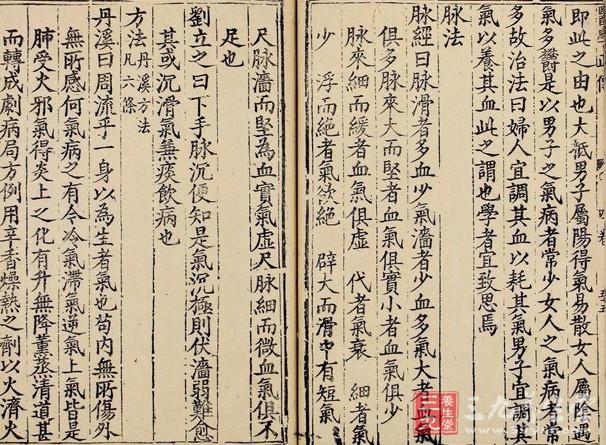 即此之由也大抵男子屬陽得氣易散女人屬陰遇
氣多鬱是以男子之氣病者常少女人之氣病者常
多故治法曰婦人宜調其血以耗其氣男子宜調其
氣以養其血此之謂也學者宜致思焉
脉法
脉經曰脉滑者多血少氣濇者少血多氣大者血氣
俱多脉來大而堅者血氣俱實小者血氣俱少
脉來細而緩者血氣俱虛　代者氣衰　細者氣
少　浮而絕者氣欲絕　辟大而滑中有短氣
尺脉濇而堅為血實氣虛尺脉細而微血氣俱不
足也
劉立之曰下手脉沉便知是氣沉極則伏濇弱難愈
其或沉滑氣兼痰飲病也
方法　丹溪方法
凡六條
丹溪曰周流乎一身以為生者氣也苟内無所傷外
無所感何氣病之有今冷氣滯氣逆氣上氣皆是
肺受火邪氣得炎上之化有升無降薰蒸清道甚
而轉成劇病局方例用辛香燥熱之劑以火濟火